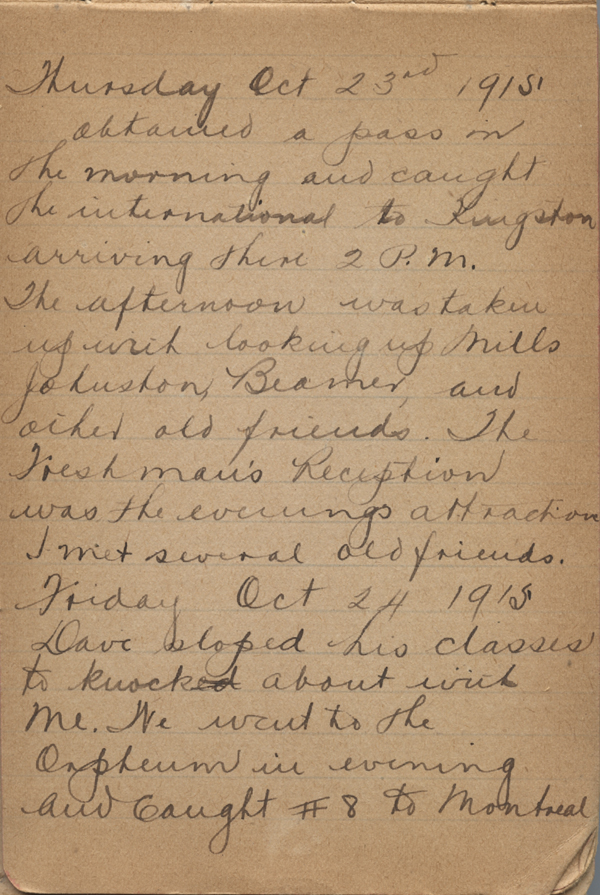 Thursday Oct 23rd 1915
obtained a pass in
the morning and caught
the international to Kingston
arriving there 2 P.M.
The afternoon was taken
up with looking up Mills
Johnston, Beamer, and
other old friends. The
Freshman's Reception
was the evenings attraction
I met several old friends.
Friday Oct 24 1915
Dave sloped his classes
to knocked about with
Me. We went to the
Orpheum in evening
and Caught # 8 to Montreal